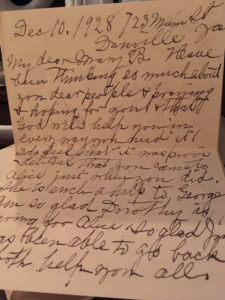 Dec 10. 1928 723 Main St
Danville
My dear Mary B. Have
been thinking so much about
you dear people & praying
& hoping for you & that
God will help you in
every way you need it. I
feel it was prov-
idential that you came to
Alice just when you did.
She is such a help to George
am so glad Dorothy is
caring for Alice & so glad
has been able to go back
both help you all.